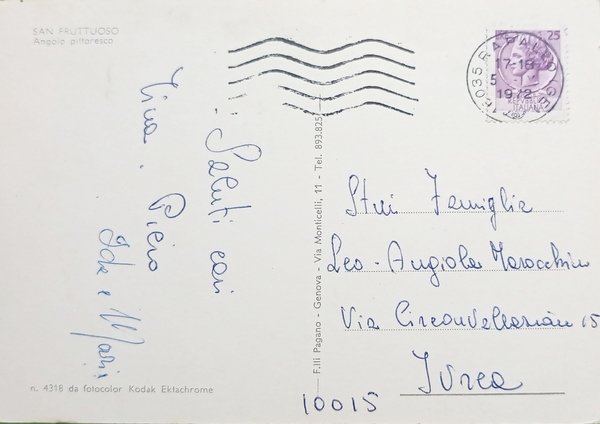 SAN FRUTTUOSO
Angolo pittoresco
Saluti cari
Tina. Piero
Ida e Maria
n. 4318 da fotocolor Kodak Ektachrome
F.lli Pagano - Genova - Via Monticelli, 11 - Tel. 893.825
25
16035 RAPALLO (GE)
17-18
5
1972
REPUBBLICA
ITALIANA
Famiglie
Leo - Angiola Marocchino
Via Circonvallazione 15
Ivrea
10015